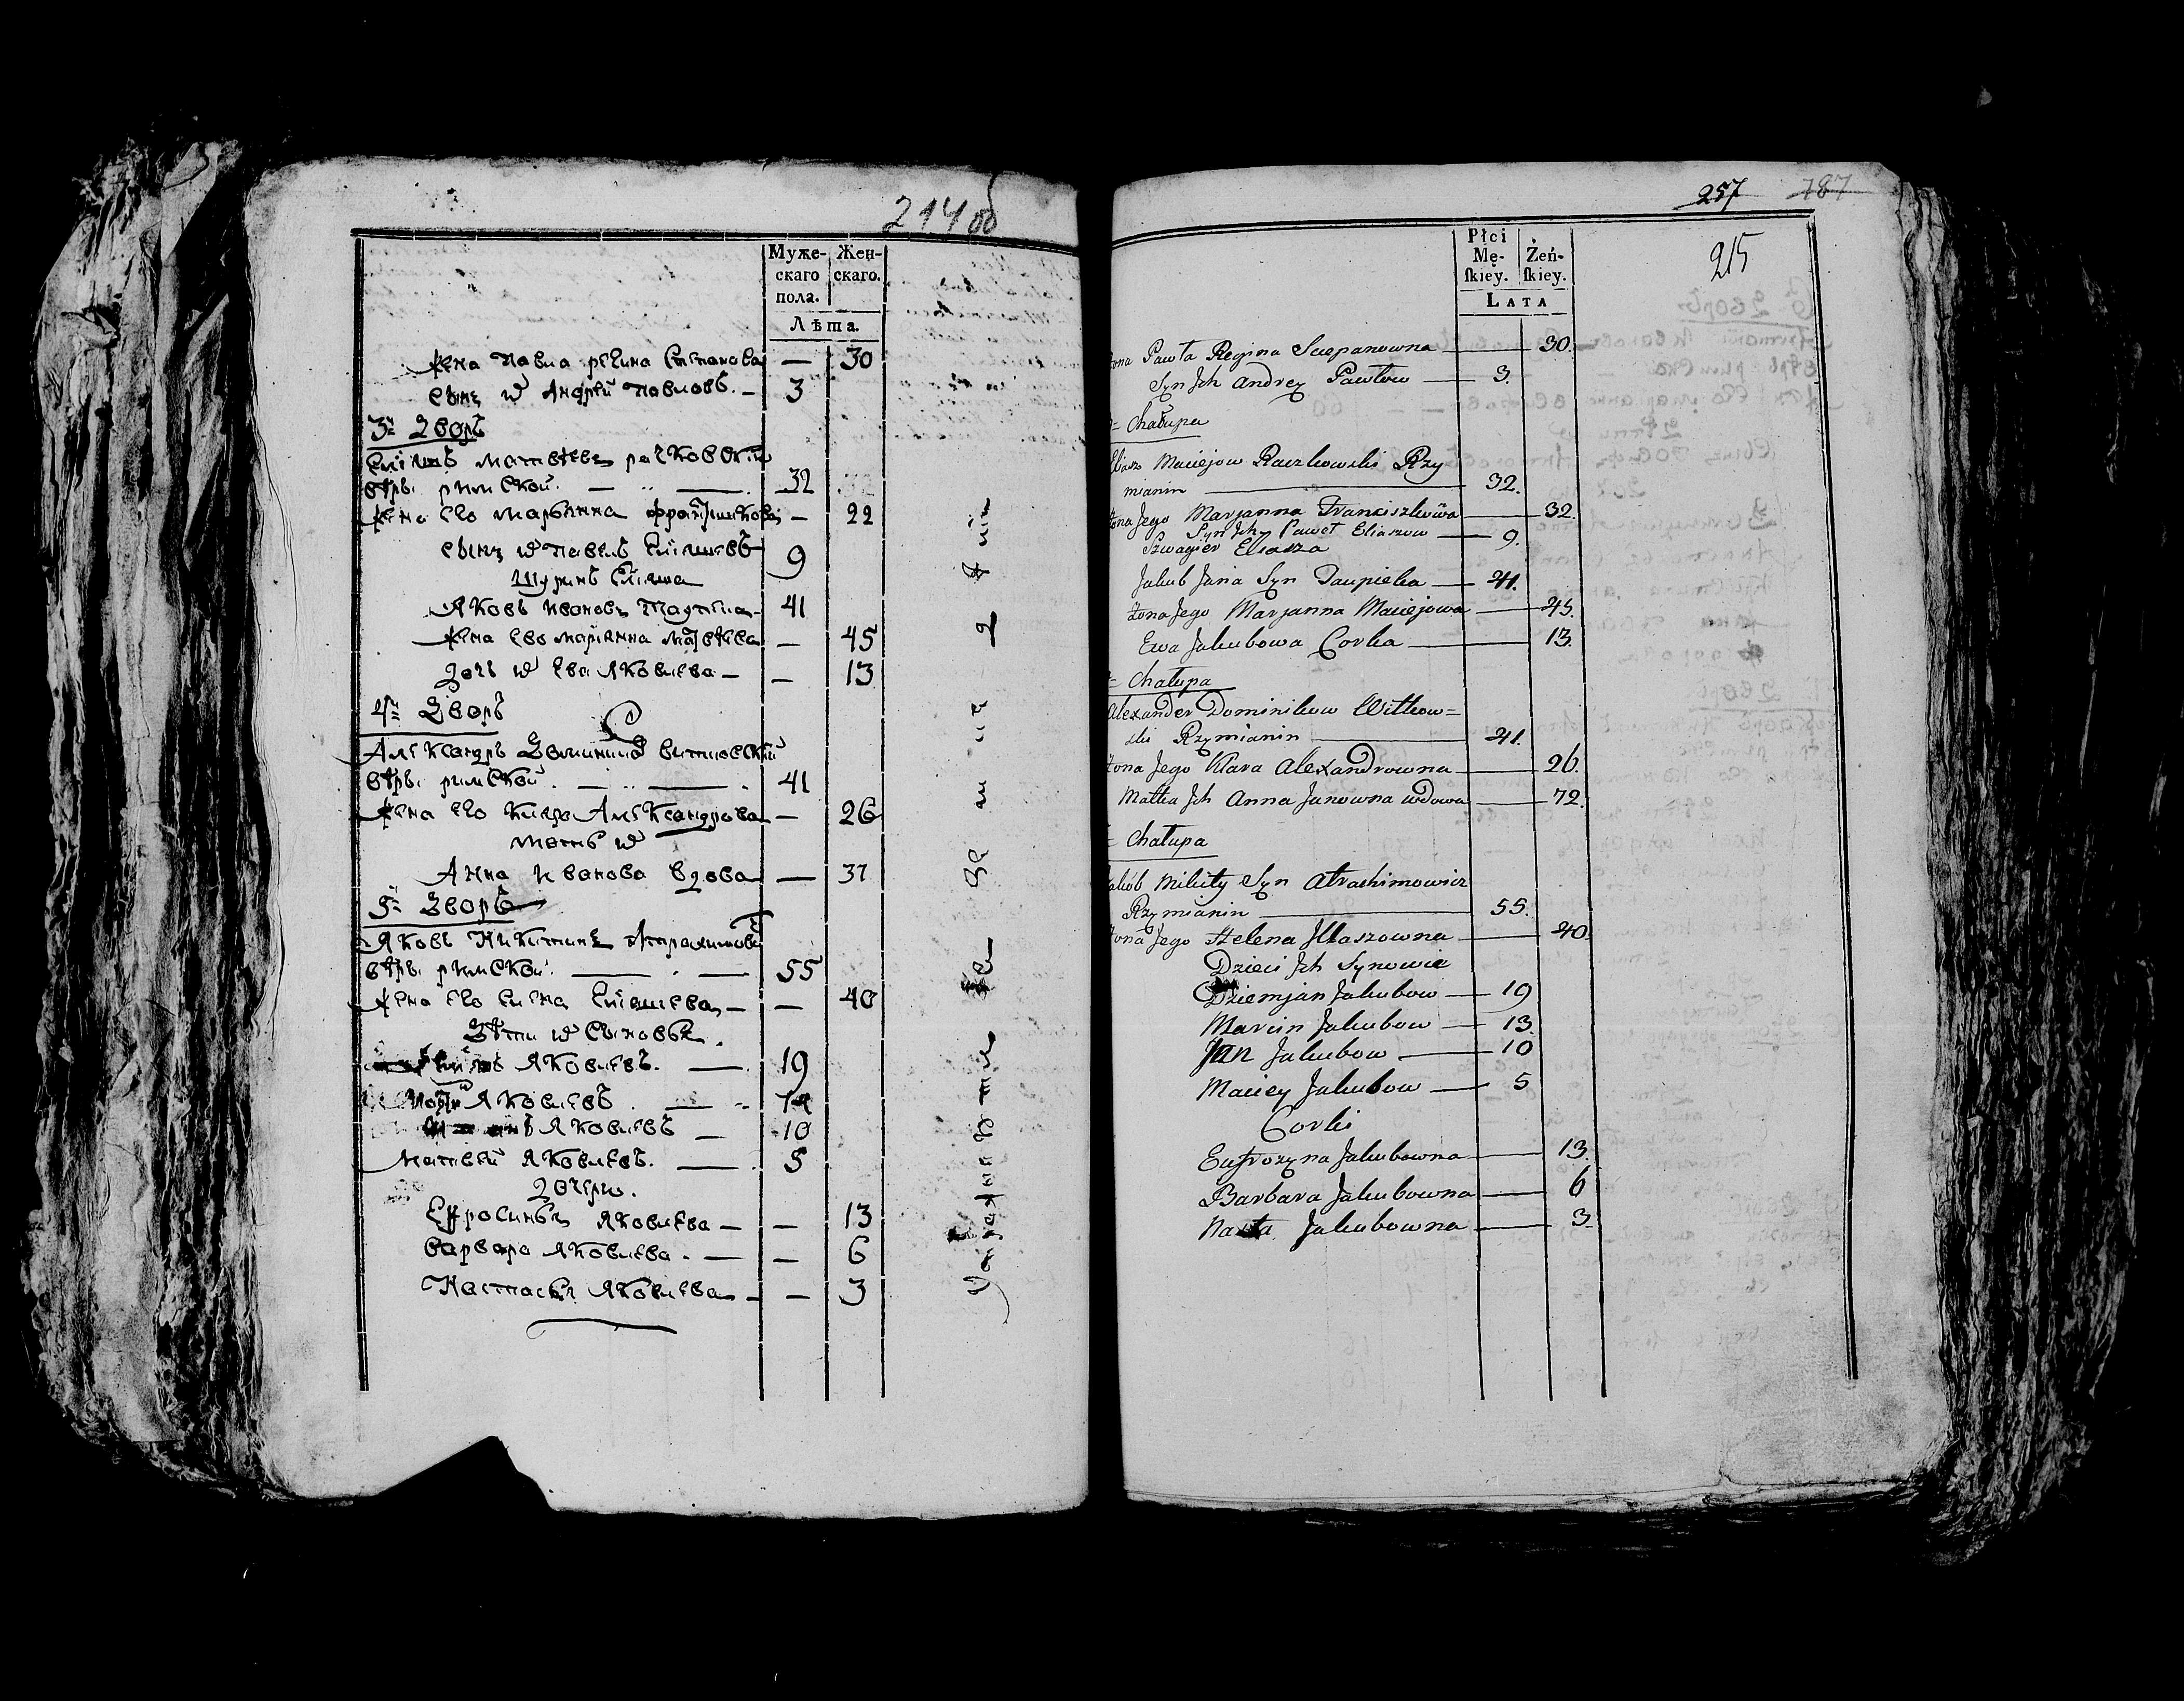 214 об
Муже-
скаго
пола.
Жен-
скаго.
Лѣта.
жена Павла регина Степанова — 30
сынъ их Андрей Павловъ. — 3
3й Дворъ
Еліяшъ Матвеевъ рачковский
веры римской. — 32
жена его Марьянна Францишкова — 22
сынъ их Павелъ Еліяшевъ 9
Шуринъ Еліяша
Яковъ Ивановъ — 41
жена ево Маріянна Матвеева — 45
дочь их Ева Яковлева — — 13
4й Дворъ
Александръ витковский
веры римской. — 41
жена его Клара Александрова — 26
мать их
Анна Иванова вдова — 37
5й Дворъ
Яковъ Никитинъ
веры римской. — 55
жена его Елена Еліяшева — — 40
Дети их Сыновья.
Яковлевъ. — 19
Яковлевъ
Яковлевъ — 10
Матвей Яковлевъ. — 5
дочери.
Ефросинья Яковлева — — 13
Варвара Яковлева. — — 6
Настасья Яковлева — — 3
257 787
215
Płci
Mę-
skiey.
Żeń-
skiey.
LATA
Żona Pawła Regina Scepanowna — 30.
Syn Ich Andrey Pawłow — 3.
Chałupa
Eliasz Maciejow Raczkowski Rzy
mianin — 32.
Żona Jego Marjanna Franciszkowa — 32.
Syn Ich Paweł Eliaszow — 9.
Szwagier Eliasza
Jakub Jana Syn — 41.
Żona Jego Marjanna Maciejowa — 45.
Ewa Jakubowa Corka — 13.
Chałupa
Alexander Dominikow Witkow=
ski Rzymianin — 41.
Żona Jego Klara Alexandrowna — 26.
Matka Ich Anna Janowna wdowa — 72.
Chałupa
Jakób Mikity Syn Atrachimowicz
Rzymianin — 55.
Żona Jego Helena Illaszowna — 40.
Dzieci Ich Synowie
Dziemjan Jakubow — 19
Marcin Jakubow — 13.
Jan Jakubow — 10
Maciey Jakubow — 5
Corki
Eufrozyna Jakubowna — 13.
Barbara Jakubowna — 6
Nasta Jakubowna — 3